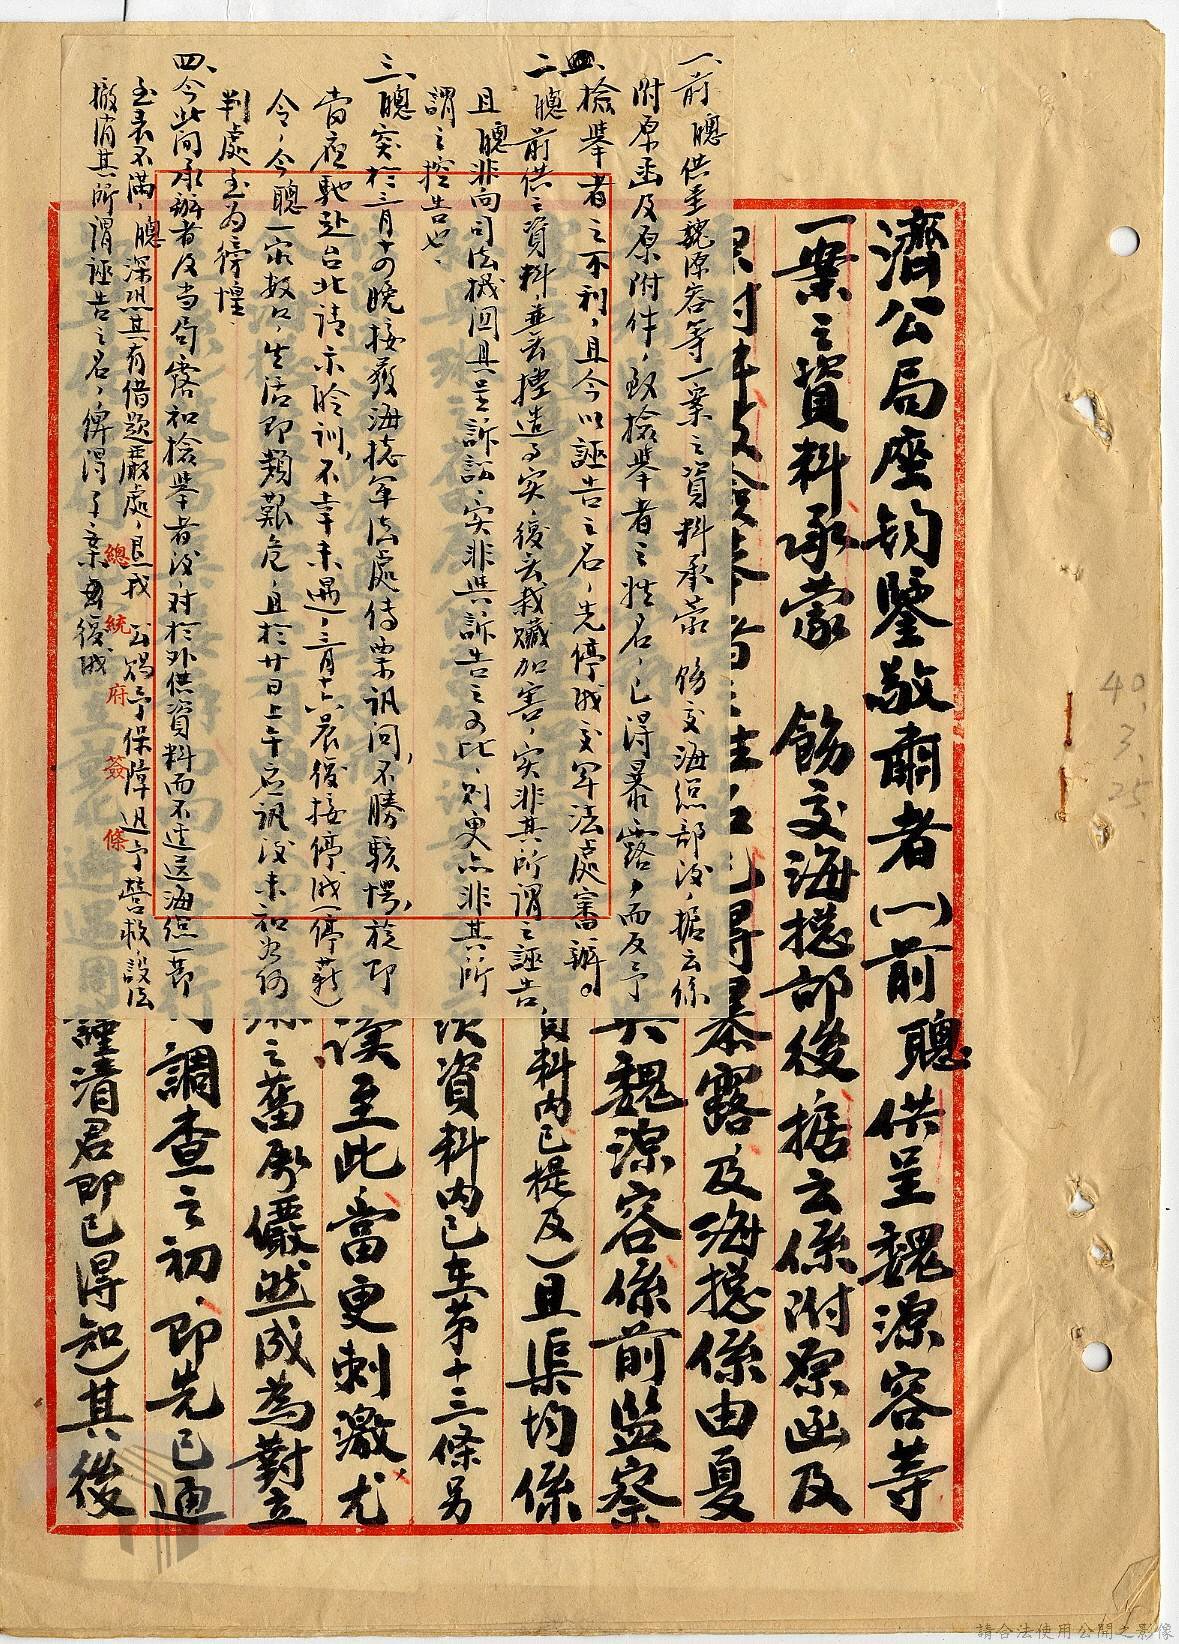 濟公局座鈞鑒敬肅者(一)前聰供呈魏源容等
一案之資料承蒙 飭交海總部後據云係附原函及
暴露及海總係由夏
魏源容係前監察
資料內已提及)且渠均係
次資料內已在第十三條另
至此當更刺激尤
之舊胏儼然成為對立
調查之初,即先已通
清君即已得知)其後
一、前聰供呈魏源容等一案之資料承蒙 飭交海總部後,據云係
附原函及原附件,致檢舉者之姓名,已得暴露,而反予
檢舉者之不利,且今以誣告之名,先停成交軍法處審辦。
二、聰前供之資料,並無揑造事實,復無栽贓加害,實非其所謂之誣告,
且聰非向司法機関具呈訴訟,實非與訴告之可比,則更亦非其所
謂之控告也。
三、聰突於三月十四晚接獲海總軍法處傳票訊问,不勝駭愕,旋即
當夜馳赴台北請示聆訓,不幸未遇,三月十六晨復接停成(停薪)
令,今聰一家數口,生活即類艱危,且於廿日上午應訊後未知如何
判處至為徬惶,
四、今此间承辦者及当局露和檢舉者後,对於外供資料而不逕送海總一節
至表不滿,聰深恐其有借題嚴處,且我 公賜予保障迅予營救設法
撤消其所謂誣告之名,俾得了案 復成
總統府簽條
40.3.25.
請合法使用公開之影像